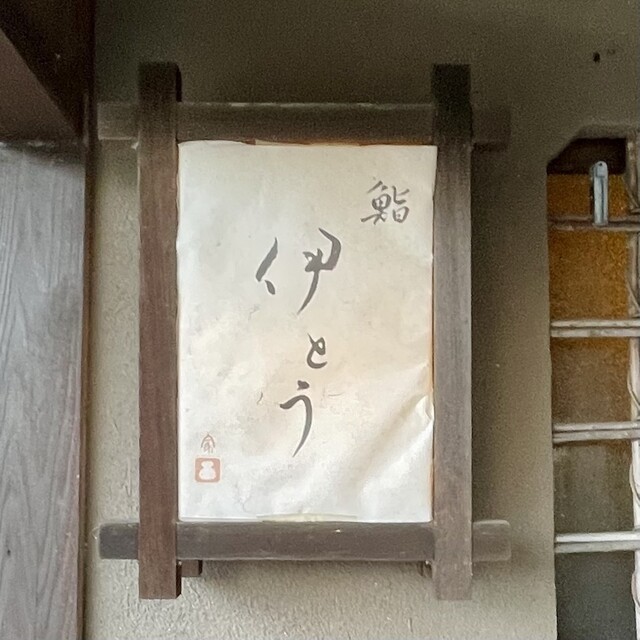 鮨
伊とう